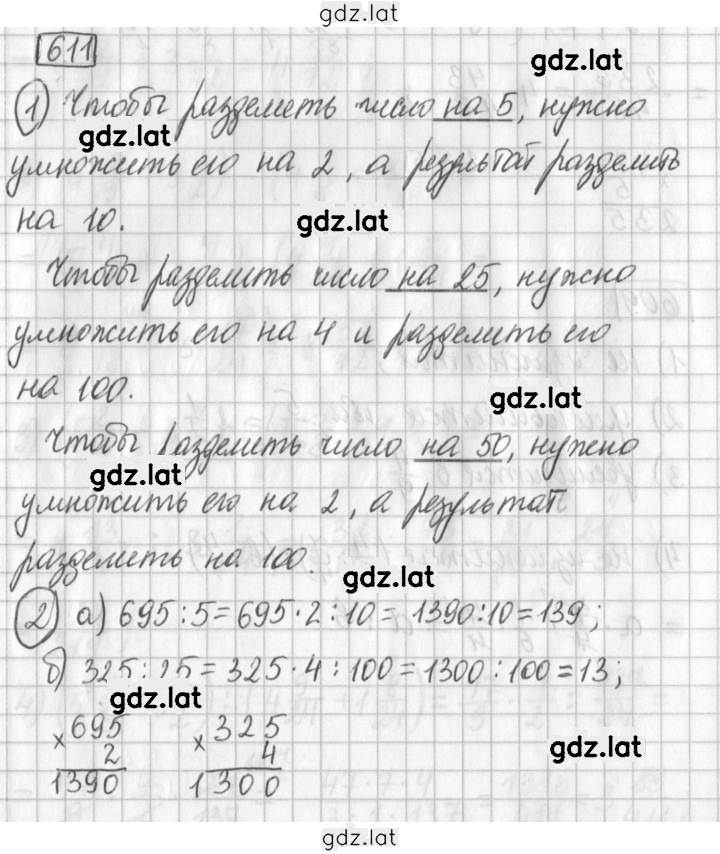 gdz.lat
611
gdz.lat
1) Чтобы разделить число на 5, нужно
gdz.lat
умножить его на 2, а результат разделить
на 10.
gdz.lat
Чтобы разделить число на 25, нужно
умножить его на 4 и разделить его
на 100.
gdz.lat
Чтобы разделить число на 50, нужно
gdz.lat
умножить его на 2, а результат
разделить на 100.
gdz.lat
2) а) 695:5=695·2:10=1390:10=139;
б) 325:25=325·4:100=1300:100=13;
gdz.lat
×695 ×325
2 4
gdz.lat
1390 1300
gdz.lat